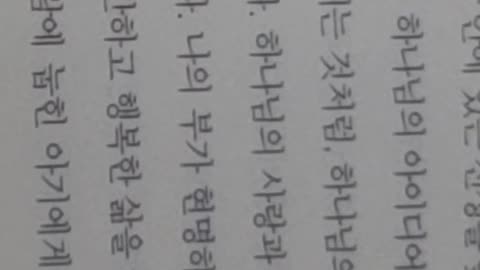 있는
하나님의 아이디어
는 것처럼, 하나님의
. 하나님의 사랑과
. 나의 부가 현명하
하고 행복한 삶을
에 눕힌 아기에게